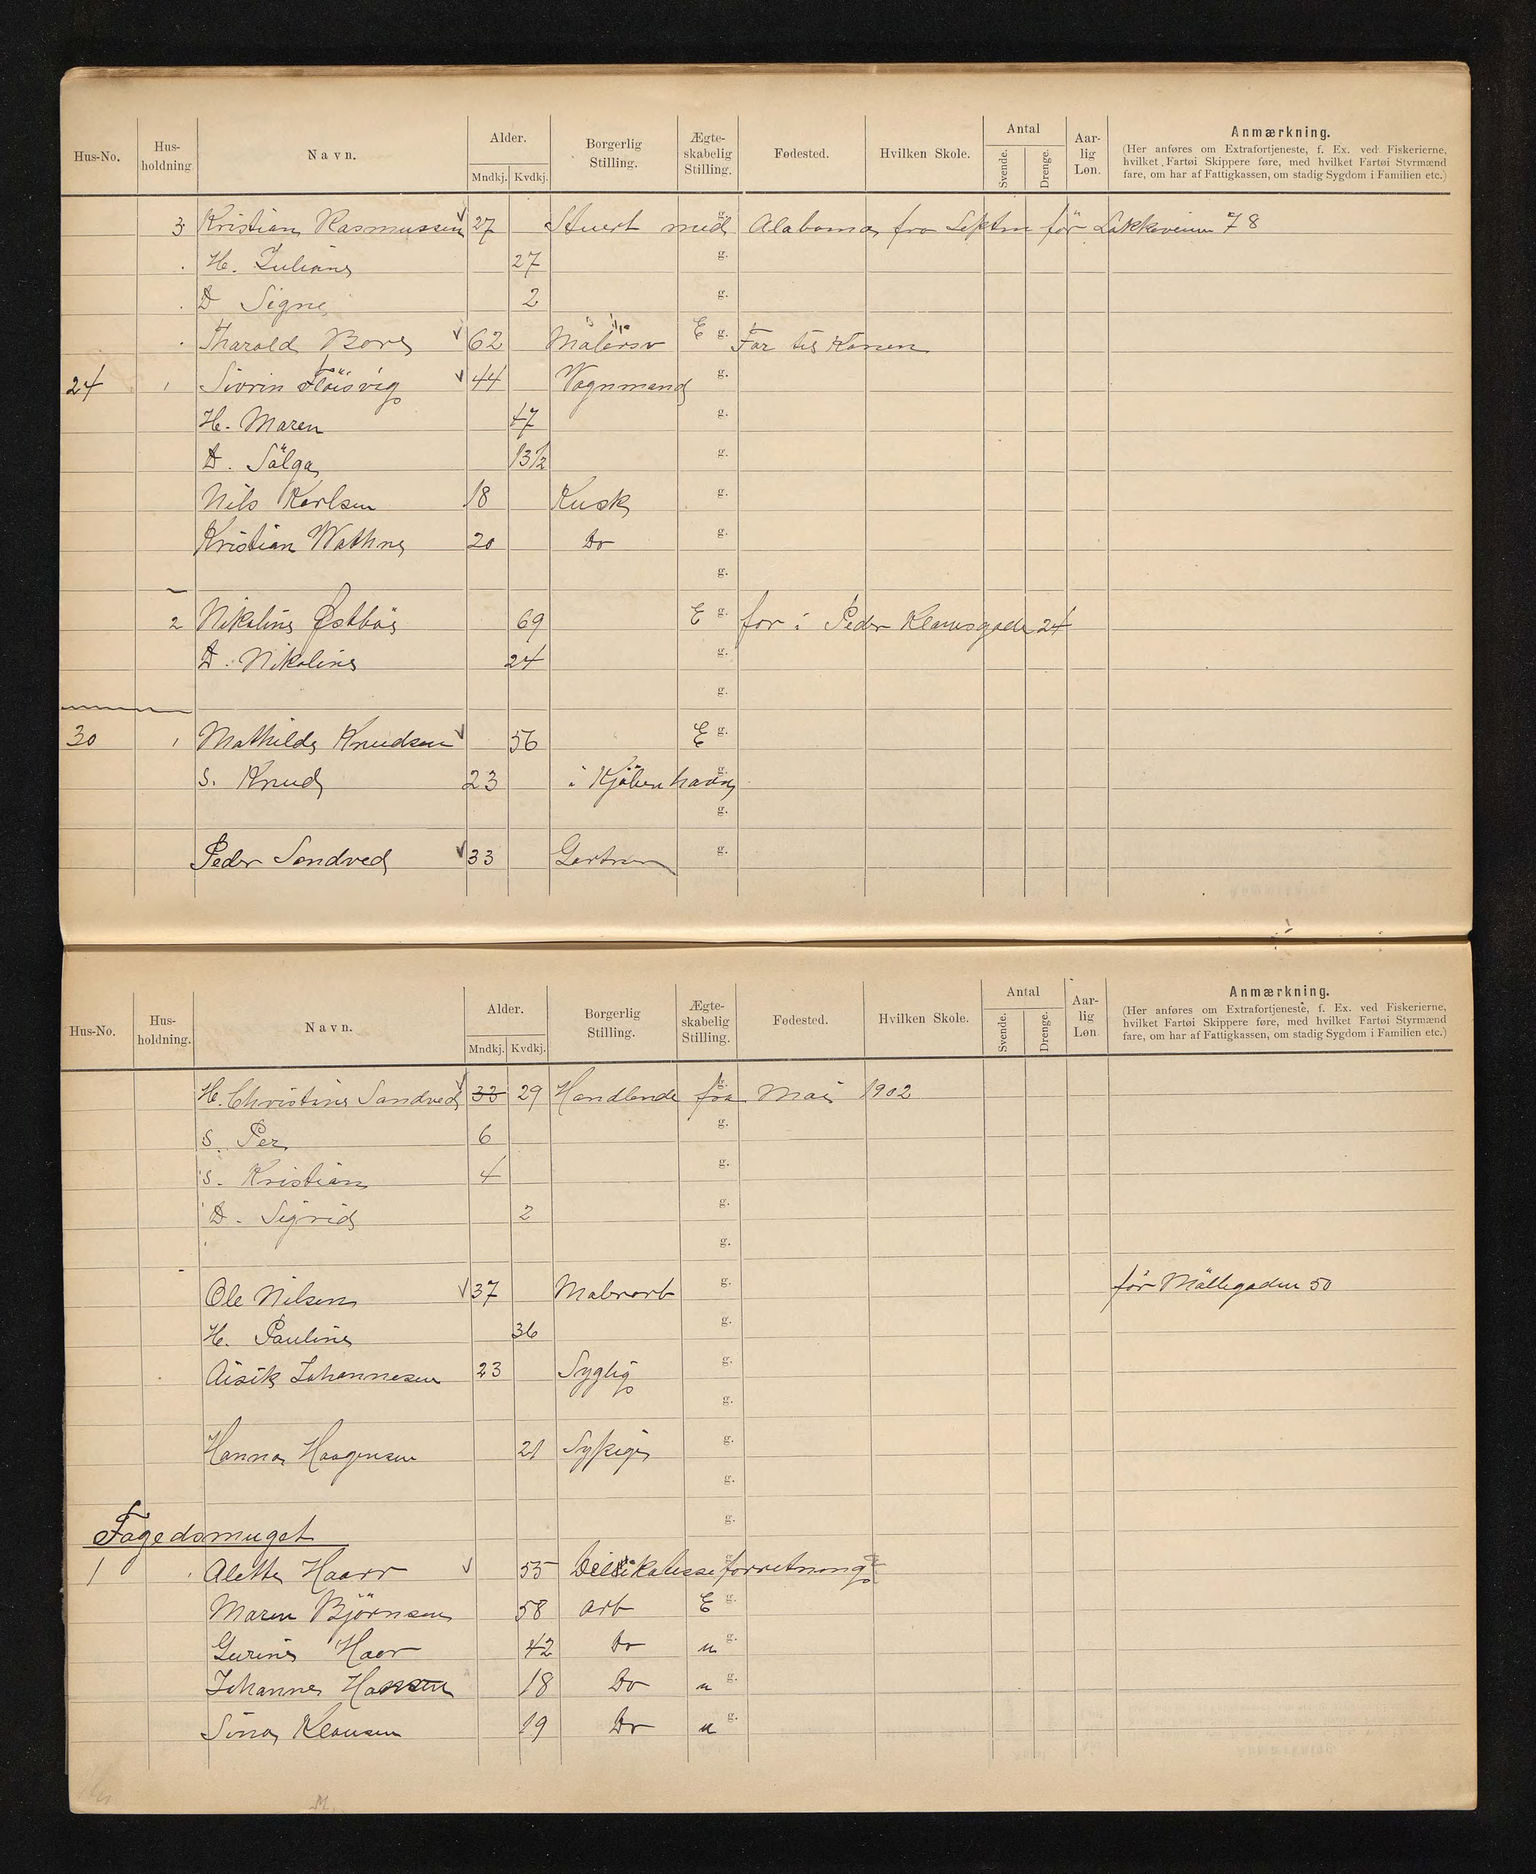 Hus-No. Hus-holdning. Navn. Alder. Mndkj. Kvdkj. Borgerlig Stilling. Ægte-skabelig Stilling. Fødested. Hvilken Skole. Antal Svende. Drenge. Aar-lig Løn. Anmærkning.
(Her anføres om Extrafortjeneste, f. Ex. ved Fiskerierne,
hvilket Fartøi Skippere føre, med hvilket Fartøi Styrmænd
fare, om har af Fattigkassen, om stadig Sygdom i Familien etc.)
3 Kristian Rasmussen 27 Stuert med g. Alabama fra Septm för Lökkeveien 78
H. Juliane 27 g.
D Signe 2 g.
Tharald Bore 62 E g. Far til Konen
24 1 Sivrin Höisvig 44 Vognmand g.
H. Maren 47 g.
D. Sölga 13 1/2 g.
Nils Karlsen 18 Kusk g.
Kristian Wathne 20 Do g.
g.
2 Nikoline Østbös 69 E g. for i Peder Klowsgade 24
D. Nikoline 24 g.
g.
30 1 Mathilde Knudsen 56 E g.
S. Knud 23 i Kjöbenhavn g.
g.
Peder Sandved 33 Gartner g.
Hus-No. Hus-holdning. Navn. Alder. Mndkj. Kvdkj. Borgerlig Stilling. Ægte-skabelig Stilling. Fødested. Hvilken Skole. Antal Svende. Drenge. Aar-lig Løn. Anmærkning.
(Her anføres om Extrafortjeneste, f. Ex. ved Fiskerierne,
hvilket Fartøi Skippere føre, med hvilket Fartøi Styrmænd
fare, om har af Fattigkassen, om stadig Sygdom i Familien etc.)
H. Christine Sandved 33 29 Handlende fra g. Mai 1902
S. Per 6 g.
S. Kristian 4 g.
D. Sigrid 2 g.
g.
Ole Nilsen 37 Malerarb g. før Möllegaden 50
H. Pauline 36 g.
Aisik Johannesen 23 Syglig g.
g.
Hanna Haagensen 21 Sypige g.
g.
Fogedsmuget g.
1 Alette Haarr 55 Delikatesseforretning g.
Maren Björnsen 58 Arb E g.
Gurine Haar 42 Do u g.
Johanne Hansen 18 Do u g.
Sina Klausen 19 Do u g.